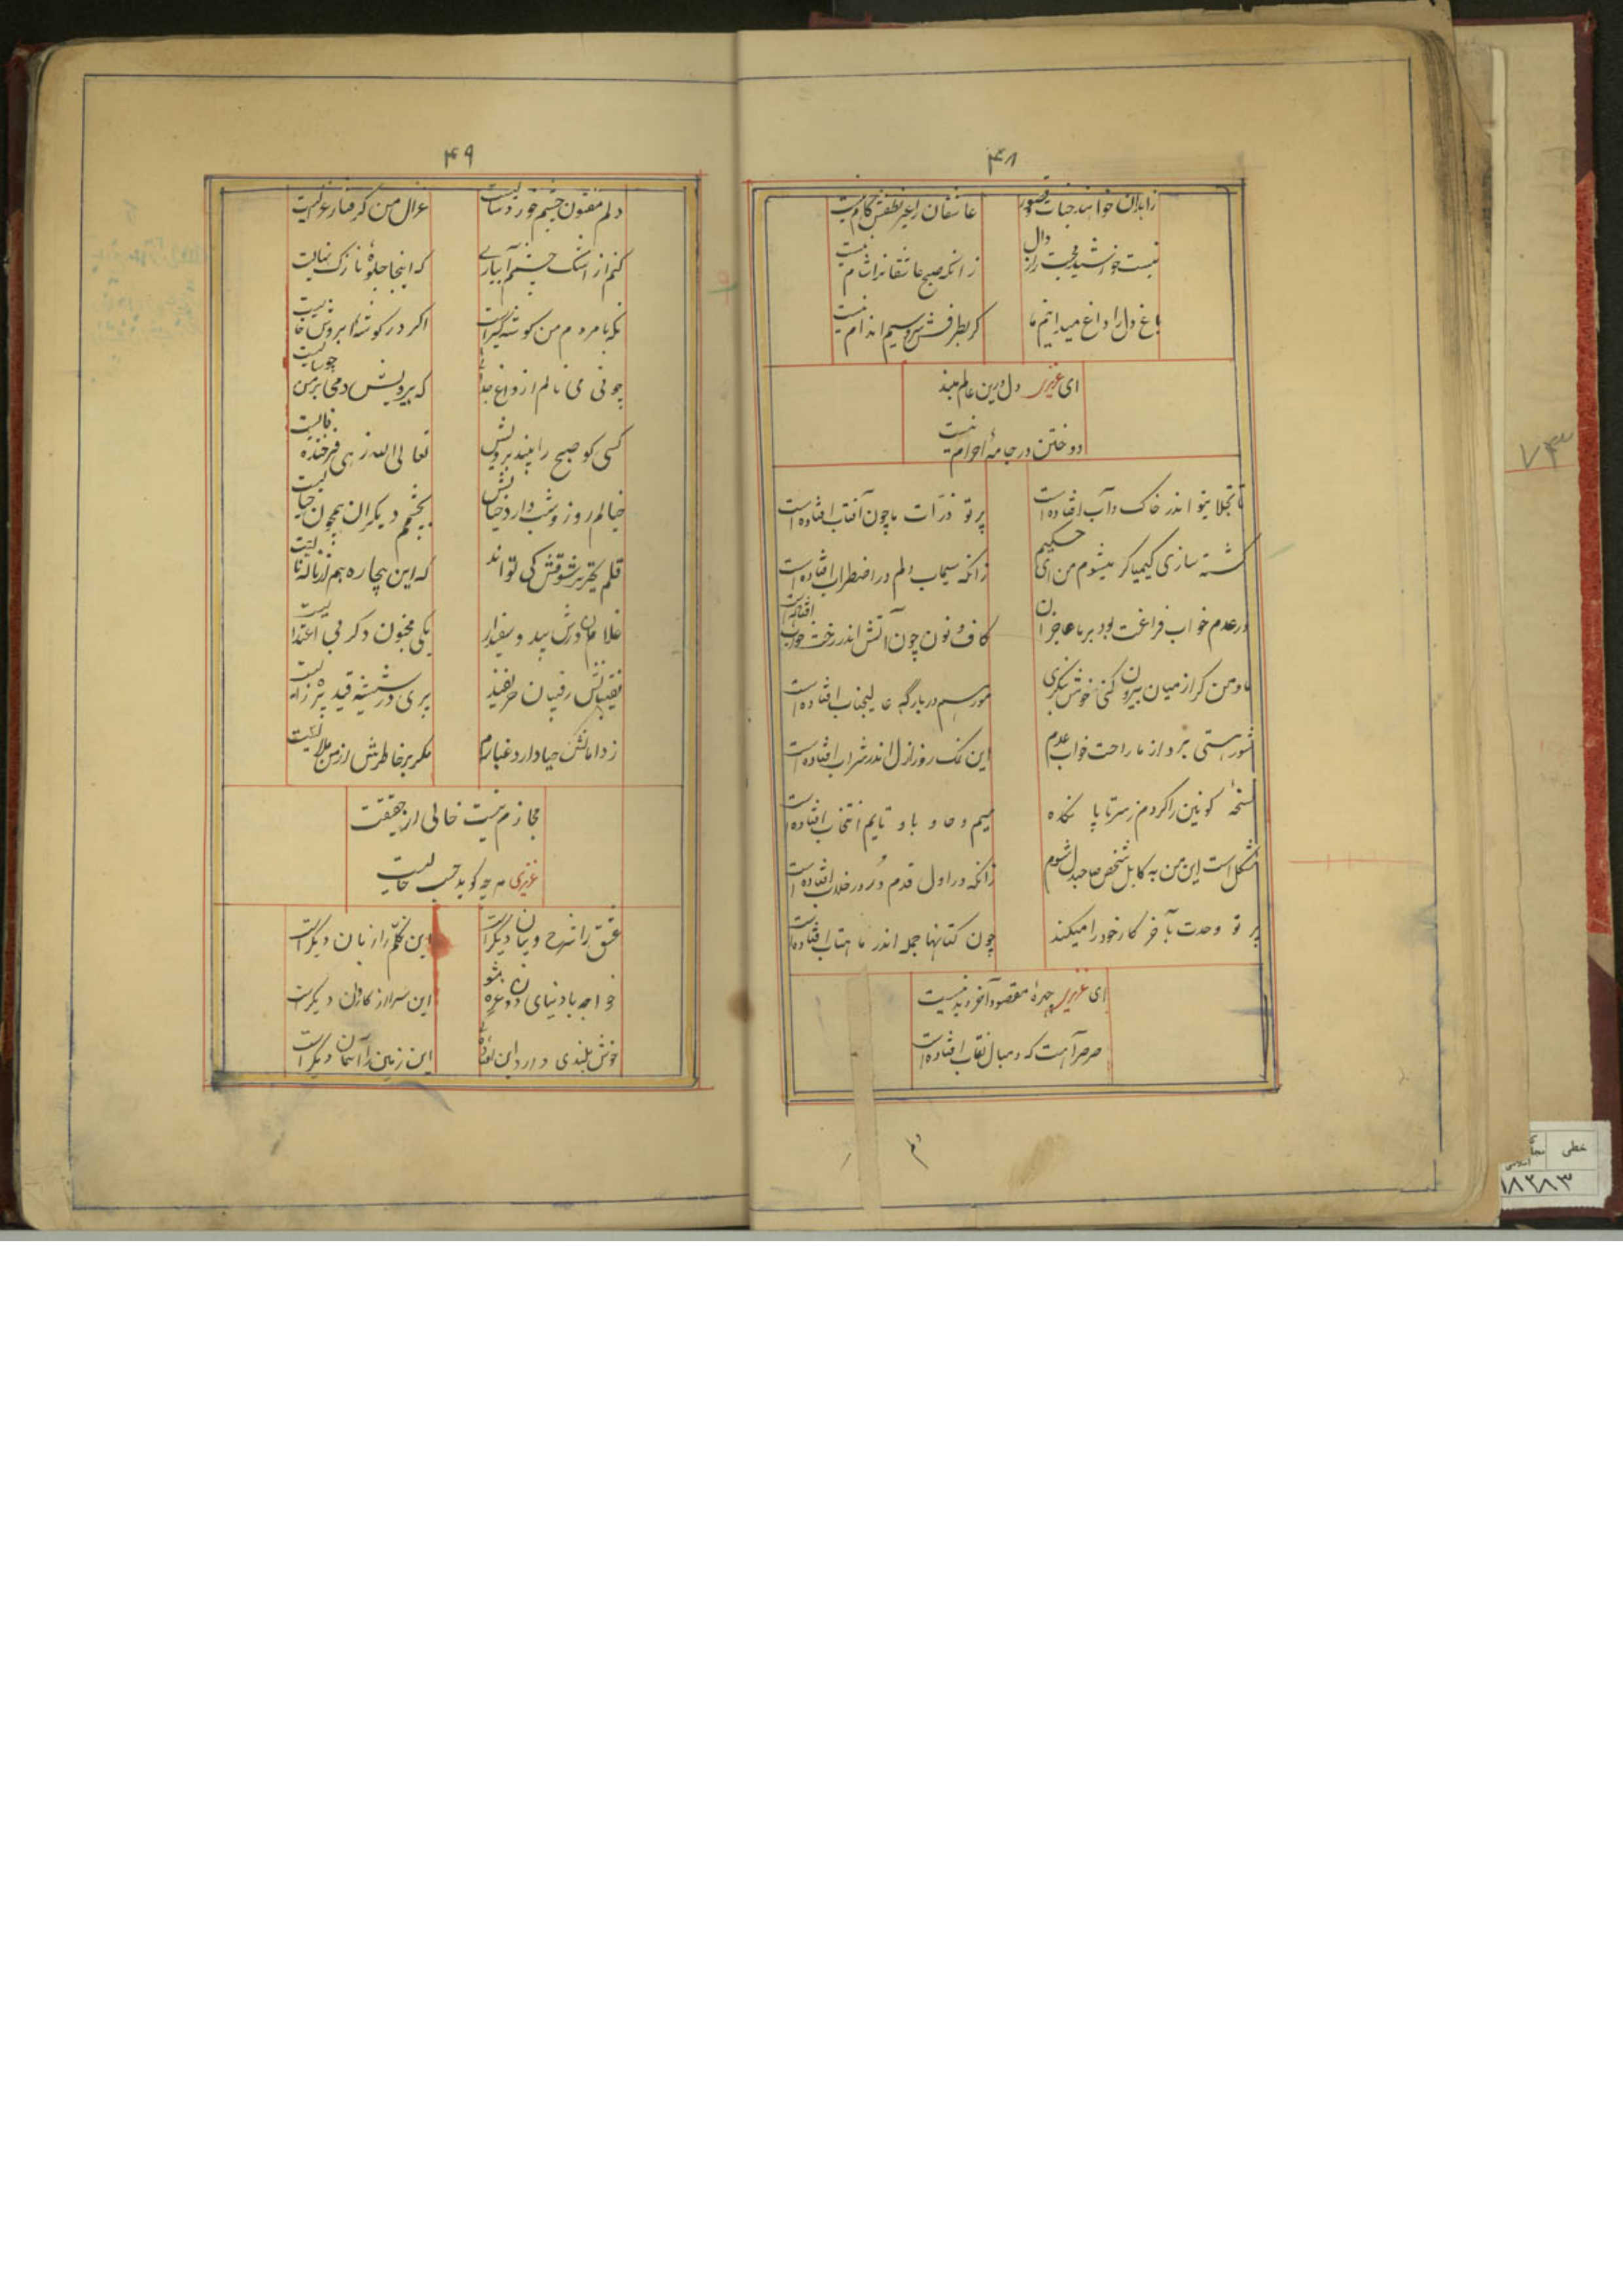 ۴۸
زاهدان خواهند جنات و قصور
عاشقان را غیر لطفش کام نیست
نیست خورشید محبت را زوال
زانکه صبح عاشقانرا شام نیست
باغ دل را داغ میدانیم ما
گر بطرفش سرو سیم اندام نیست
ای عزیزی دل درین عالم مبند
دوختن در جامهٔ احرام نیست
تا تجلا بتو اندر خاک و آب افتاده است
پرتو ذرّات ما چون آفتاب افتاده است
کشته سازی کیمیاگر میشوم من ای حکیم
زانکه سیماب دلم در اضطراب افتاده است
در عدم خواب فراغت بود بر ما عاجزان
کاف و نون چون آتش اندر رخت خواب افتاده است
ما و من گر از میان بیرون کنی خوش بنگری
مور هم در بارگه عالیجناب افتاده است
شور هستی برد از ما راحت خواب عدم
این نمک روز ازل اندر شراب افتاده است
نسخهٔ کونین را کردم ز سر تا پا نگاه
میم و حا و با و تایم انتخاب افتاده است
مشکل است این من به کابل شخص صاحبدل شوم
زانکه در اول قدم خر در خلاب افتاده است
پرتو وحدت بآخر کار خود را میکند
چون کتانها جمله اندر ماهتاب افتاده است
ای عزیزی چهرهٔ مقصود آخر دیدنیست
صرصر آهت که دنبال نقاب افتاده است
۴۹
دلم مفتون چشم خورد سالیست
غزال من گرفتار غزالیست
کنم از اشک چشم آبیاری
که اینجا جلوهٔ نازک نهالیست
نگه با مردم من گوشه گیر است
اگر در گوشهٔ ابروش خالیست
چو نی می نالم از داغ جدائی
که بیرویش دمی بر من چو سالیست
کسی کو صبح را بیند برویش
تعالی الله زهی فرخنده فالیست
خیالم روز و شب دارد خیالش
بچشم دیگران همچون خیالیست
قلم تحریر شوقش کی تواند
که این بیچاره هم از ناله نالیست
غلامان درش بید و سفیدار
یکی مجنون دگر بی اعتدالیست
نقیبانش رقیبان حریفند
پری در شیشه قید پیره زالیست
ز دامانش حیا دارد غبارم
مگر بر خاطرش از من ملالیست
مجازم نیست خالی از حقیقت
عزیزی هر چه گوید حسب حالیست
عشق را شرح و بیان دیگر است
این تکلّم را زبان دیگر است
خواجه با دنیای دون غره مشو
این سرا را کاروان دیگر است
این زمین را آسمان دیگر است
خطی
۱۸۲۸۳